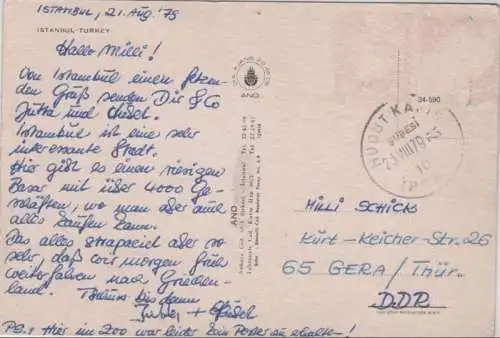 ISTANBUL, 21. Aug. '79
ISTANBUL-TURKEY
Hallo Milli!
Von Istanbul einen
den Gruß senden Dir & Co
Jutta und
Istanbul ist eine sehr
interessante Stadt.
Hier gibt es einen riesigen
Basar mit über 4000 Ge-
schäften, wo man aber auch
alles kaufen kann.
Das alles strapaziert aber so
sehr, daß wir morgen früh
weiterfahren nach Griechen-
land. Tschüss bis dann
Jutta +
PS.: Hier im Zoo war leider kein Poster zu erhalten!
AND
34-590
HUDUT KAPI
ŞUBESİ
23.VIII.79
10
MILLI SCHICK
Kurt-Keicher-Str. 26
65 GERA / Thür.
DDR
AND